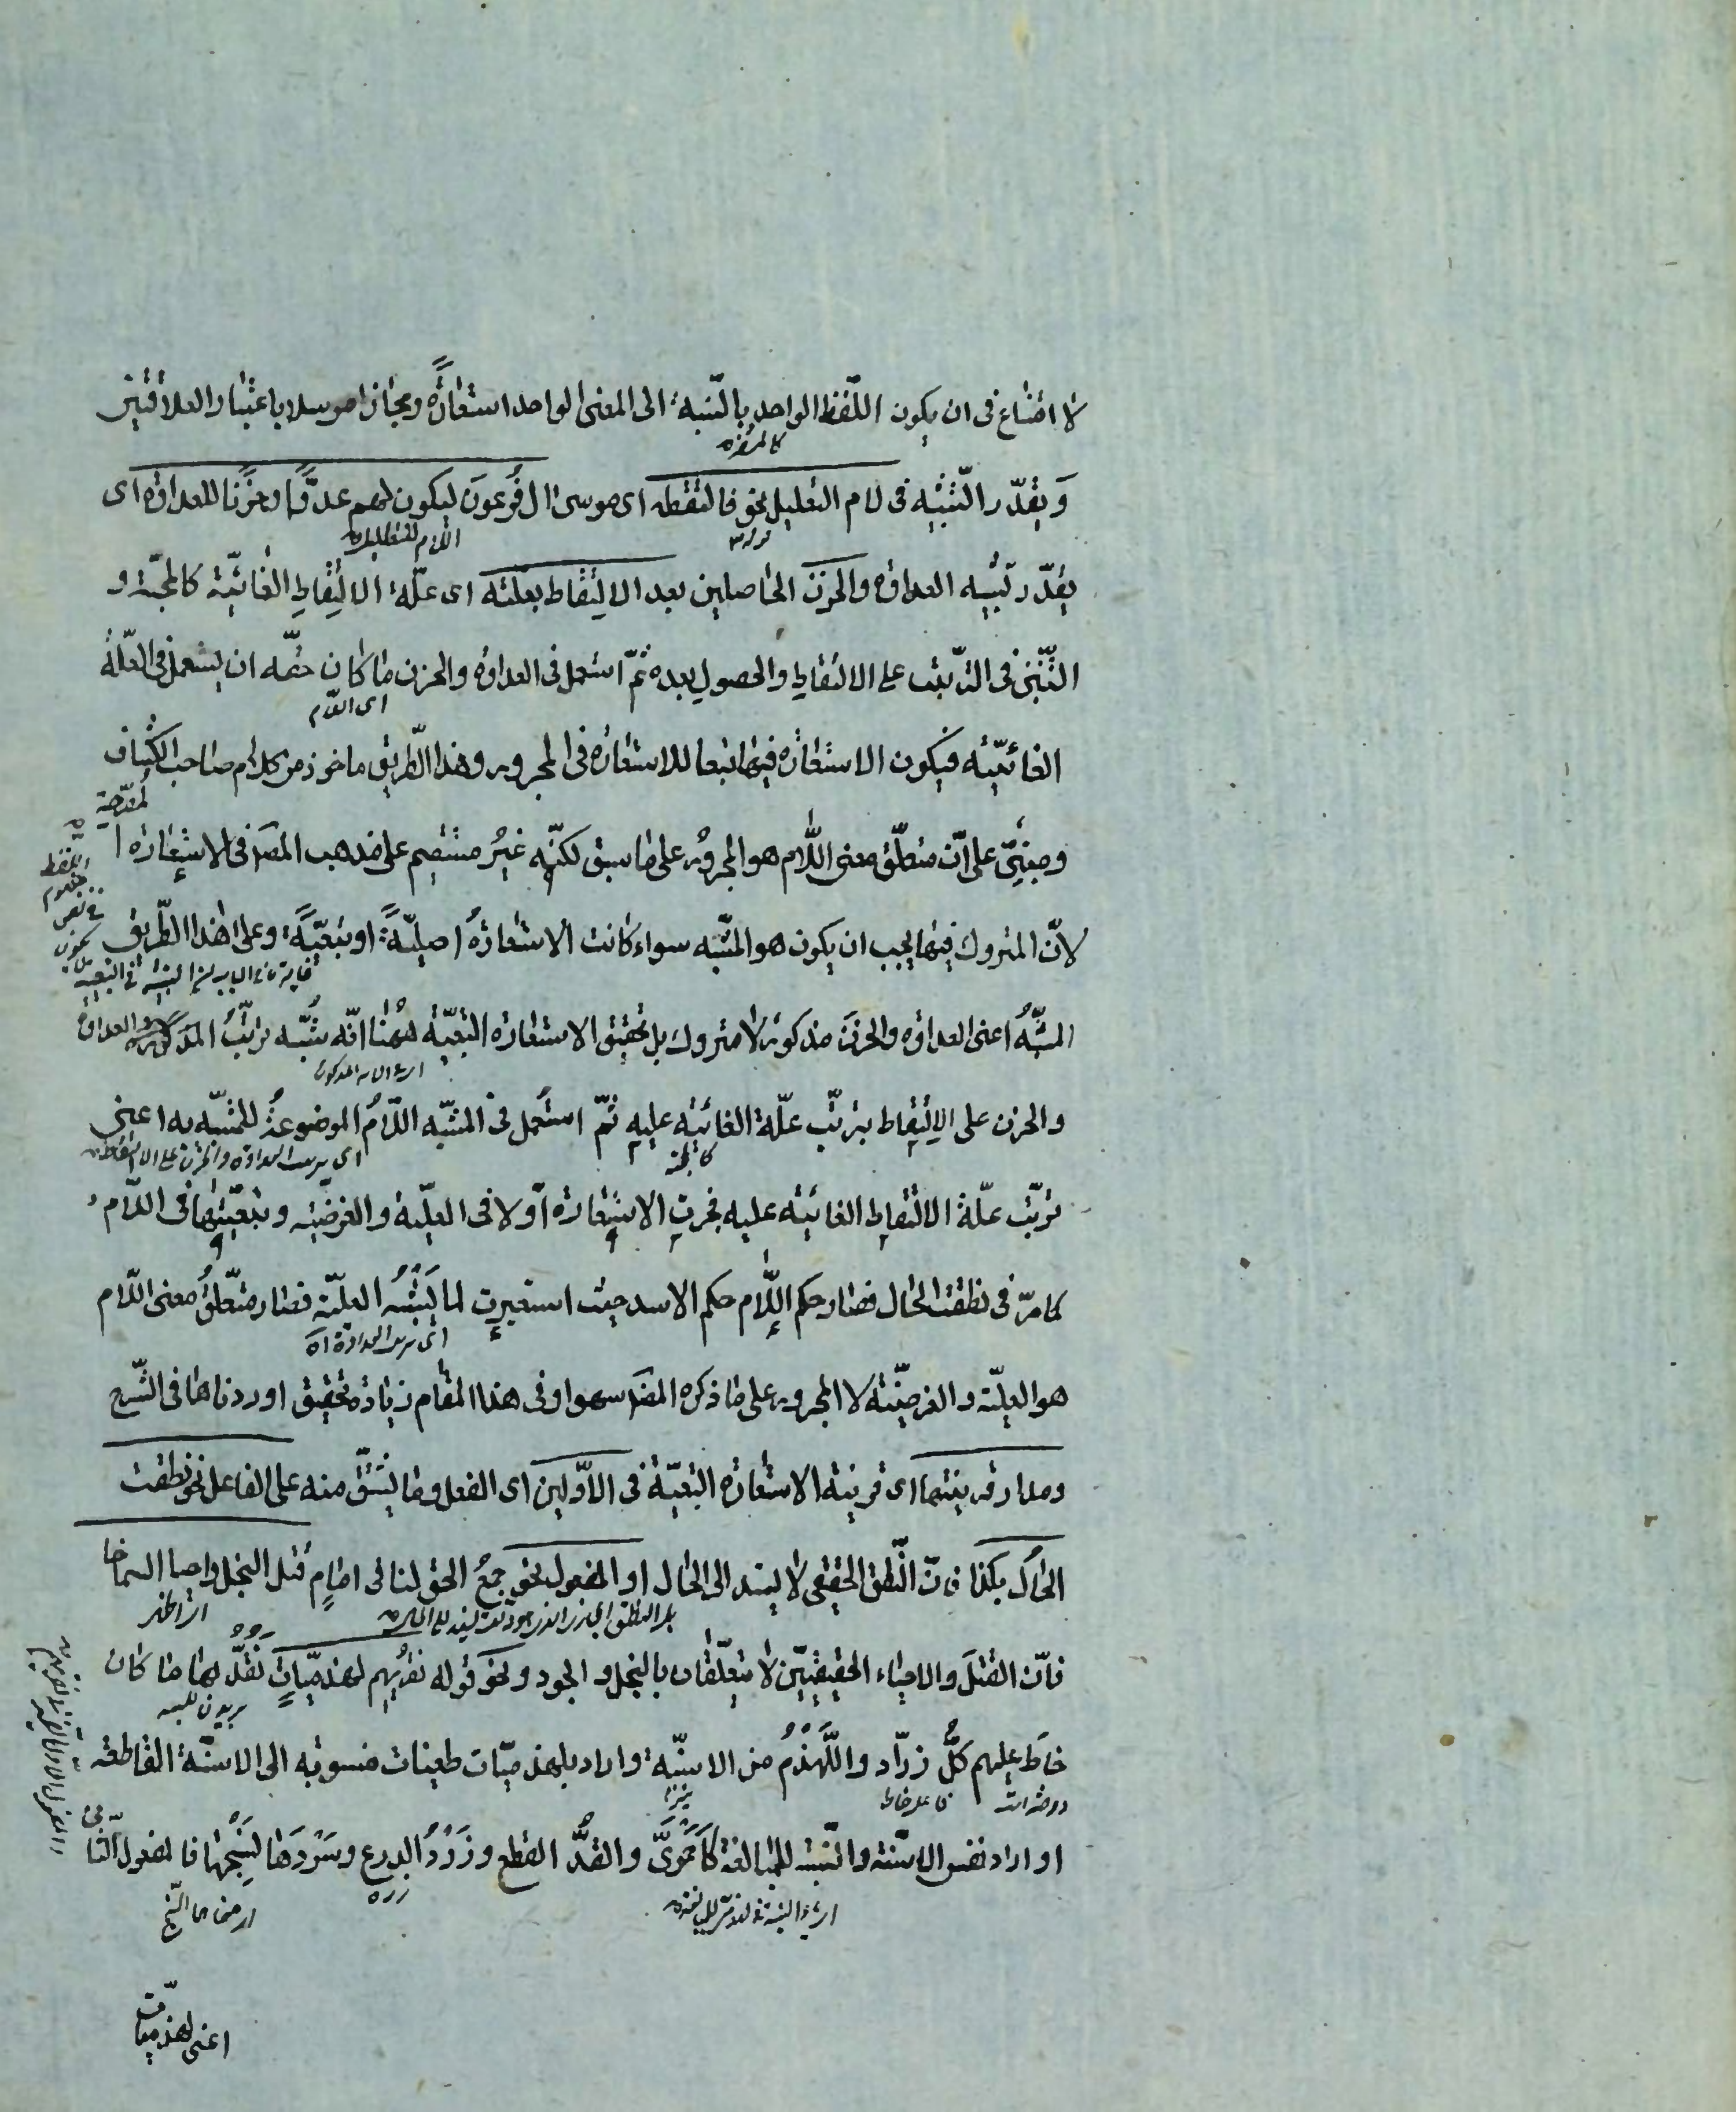 لا امتناع فى ان يكون اللّفظ الواحد بالنّسبة الى المعنى الواحد استعارةً ومجازا مرسلا باعتبار العلاقتين
وَيقدّر التّشبيه فى لام التعليل نحو فالتقطه اى موسى ال فرعونَ ليكون لهم عدوّا وحزنا للعداوة اى
يقدّر تشبيه العداوة والحزن الحاصلين بعد الالتقاط بعلّته اى علّة الالتقاط الغائيّة كالمحبّة و
التّبنّى فى التّرتّب على الالتقاط والحصول بعده ثمّ استعمل فى العداوة والحزن ما كان حقّه ان يستعمل فى العلّة
اى اللام
الغائيّة فيكون الاستعارة فيها تبعا للاستعارة فى المجرور وهذا الطّريق ماخوذ من كلام صاحب الكشّاف
ومبنىّ على انّ متعلّق معنى اللّام هو المجرور على ما سبق لكنّه غيرُ مستقيم على مذهب المصَ فى الاستعارة ا
لمصرّحة
لانّ المتروك فيها يجب ان يكون هو المشبّه سواء كانت الاستعارةُ اصليّةً او تبعيّةً وعلى هذا الطّريق
المشبّهُ اعنى العداوة والحزنَ مذكور لا متروك بل تحقيق الاستعارة التبعيّة ههنا انّه شُبّه ترتّبُ العداوة
والحزن على الالتقاط بترتّب علّة الغائيّة عليه ثمّ استُعمل فى المشبّه اللّامُ الموضوعةُ للمشبّه به اعنى
كالمحبّة
اى ترتب العداوة والحزن على الالتقاط
ترتّب علّة الالتقاط الغائيّة عليه فجرت الاستعارة اوّلا فى العلّيّة والغرضيّة وبتبعيّتها فى اللّام
كما مرّ فى نطقت الحال فصار حكم اللّام حكم الاسد حيث استعيرت لما يُشْبِهُ العلّيّة فصار متعلّقُ معنى اللّام
اى ترتب العداوة اه
هو العلّيّة والغرضيّة لا المجرور على ما ذكره المصَ سهوا وفى هذا المقام زيادة تحقيق اوردناها فى الشّرح
ومدار قرينتها اى قرينة الاستعارة التبعيّة فى الاوّلين اى الفعل وما يشتقّ منه على الفاعل نحو نطقت
الحالُ بكذا فانّ النّطق الحقيقى لا يسند الى الحال او المفعول نحو جمعُ الحق لنا فى امامٍ قتل البخل واحيا السماحا
فانّ القتلَ والاحياء الحقيقيّين لا يتعلّقان بالبخل والجود ونحو قوله نقريهم لهذميّاتٍ نقُدُّ بها ما كان
خاطَ عليهم كلُّ زرّاد واللَّهْذَمُ من الاسنّة واراد بلهذميّات طعنات منسوبة الى الاسنّة القاطعة
فاعل خاط
او اراد نفس الاسنّة والنّسبة للمبالغة كاَحْمَرىّ والقدُّ القطع وزَرْدُ الدرع وسَرْدُها نسجُها فالمفعول الثّانى
زره
اعنى لهذميّات